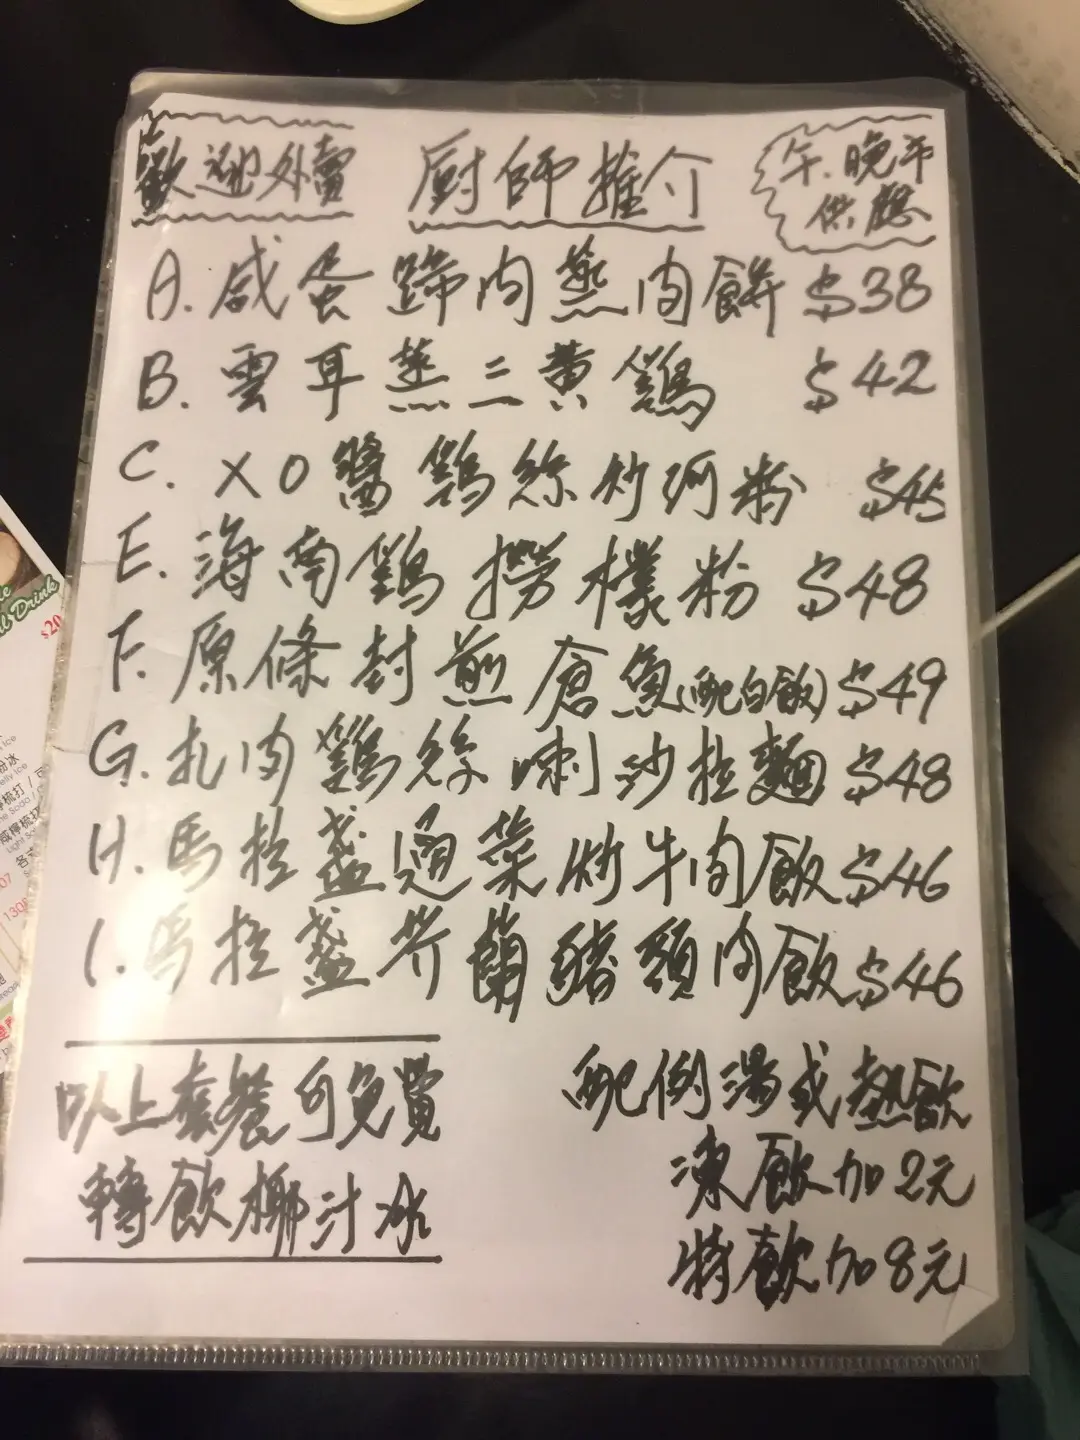 歡迎外賣 廚師推介 午.晚市
供應
A.咸蛋蹄肉蒸肉餅 $38
B.雲耳蒸三黃鷄 $42
C.XO醬鷄絲炒河粉 $45
E.海南鷄撈檬粉 $48
F.原條封煎倉魚(配白飯) $49
G.扎肉鷄絲喇沙拉麵 $48
H.馬拉盞通菜炒牛肉飯 $46
I.馬拉盞芥蘭豬頸肉飯 $46
以上套餐可免費
轉飲椰汁冰
配例湯或熱飲
凍飲加2元
特飲加8元
Drink
$20